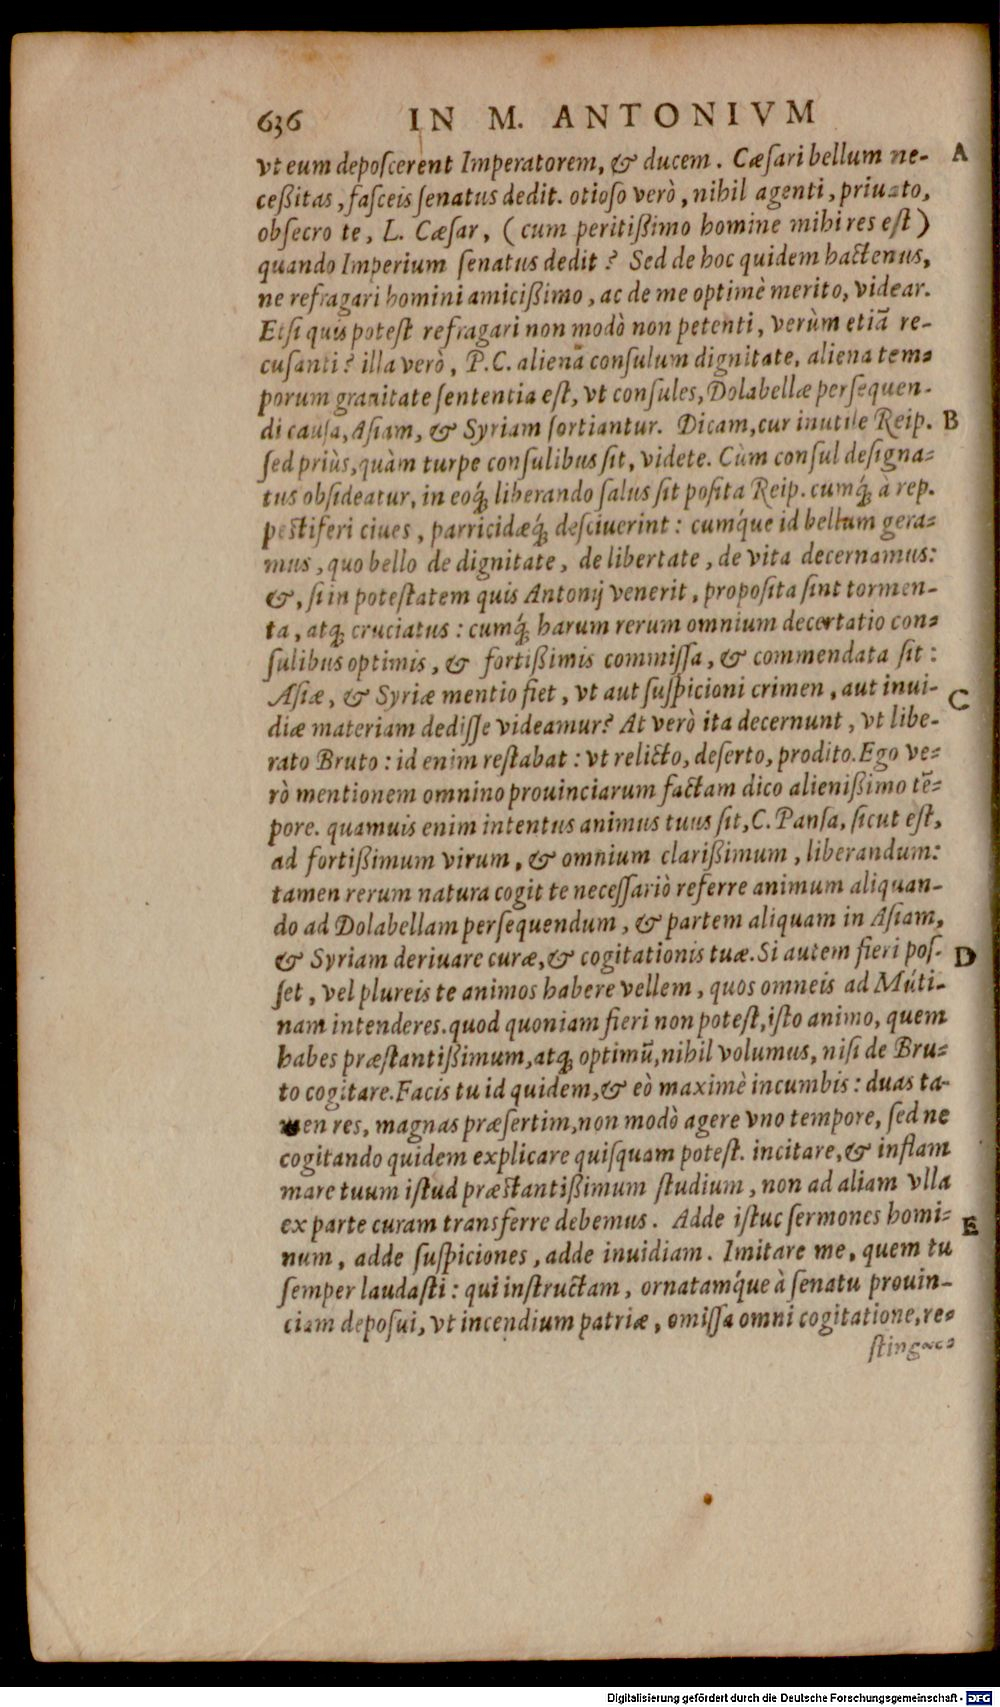 636 IN M. ANTONIVM
vt eum deposcerent Imperatorem, & ducem. Cæsari bellum ne- A
ceßitas, fasceis senatus dedit. otioso verò, nihil agenti, priuato,
obsecro te, L. Cæsar, (cum peritißimo homine mihi res est)
quando Imperium senatus dedit? Sed de hoc quidem hactenus,
ne refragari homini amicißimo, ac de me optimè merito, videar.
Etsi quis potest refragari non modò non petenti, verùm etiā re-
cusanti? illa verò, P.C. aliena consulum dignitate, aliena tem=
porum grauitate sententia est, vt consules, Dolabellæ persequen-
di causa, Asiam, & Syriam sortiantur. Dicam, cur inutile Reip. B
sed priùs, quàm turpe consulibus sit, videte. Cùm consul designa=
tus obsideatur, in eoq́; liberando salus sit posita Reip. cumq́; à rep.
pestiferi ciues, parricidæq́; desciuerint: cumq́ue id bellum gera=
mus, quo bello de dignitate, de libertate, de vita decernamus:
&, si in potestatem quis Antonij venerit, proposita sint tormen-
ta, atq; cruciatus: cumq́; harum rerum omnium decertatio con=
sulibus optimis, & fortißimis commissa, & commendata sit:
Asiæ, & Syriæ mentio fiet, vt aut suspicioni crimen, aut inui- C
diæ materiam dedisse videamur? At verò ita decernunt, vt libe-
rato Bruto: id enim restabat: vt relicto, deserto, prodito. Ego ve=
rò mentionem omnino prouinciarum factam dico alienißimo tē=
pore. quamuis enim intentus animus tuus sit, C. Pansa, sicut est,
ad fortißimum virum, & omnium clarißimum, liberandum:
tamen rerum natura cogit te necessariò referre animum aliquan-
do ad Dolabellam persequendum, & partem aliquam in Asiam,
& Syriam deriuare curæ, & cogitationis tuæ. Si autem fieri pos- D
set, vel plureis te animos habere vellem, quos omneis ad Múti-
nam intenderes. quod quoniam fieri non potest, isto animo, quem
habes præstantißimum, atq; optimū, nihil volumus, nisi de Bru=
to cogitare. Facis tu id quidem, & eò maximè incumbis: duas ta-
men res, magnas præsertim, non modò agere vno tempore, sed ne
cogitando quidem explicare quisquam potest. incitare, & inflam
mare tuum istud præstantißimum studium, non ad aliam vlla
ex parte curam transferre debemus. Adde istuc sermones homi= E
num, adde suspiciones, adde inuidiam. Imitare me, quem tu
semper laudasti: qui instructam, ornatamq́ue à senatu prouin-
ciam deposui, vt incendium patriæ, omissa omni cogitatione, re=
Digitalisierung gefördert durch die Deutsche Forschungsgemeinschaft - DFG